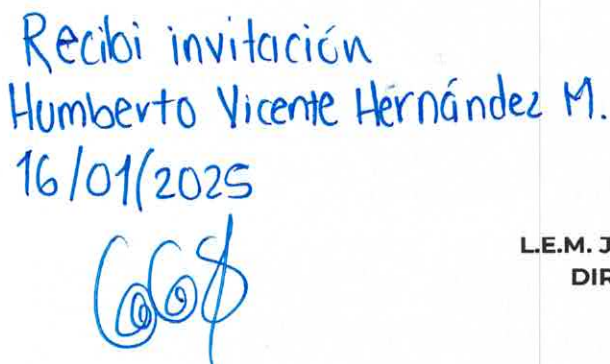 Recibi invitación
Humberto Vicente Hernández M.
16/01/2025
L.E.M. J
DIR